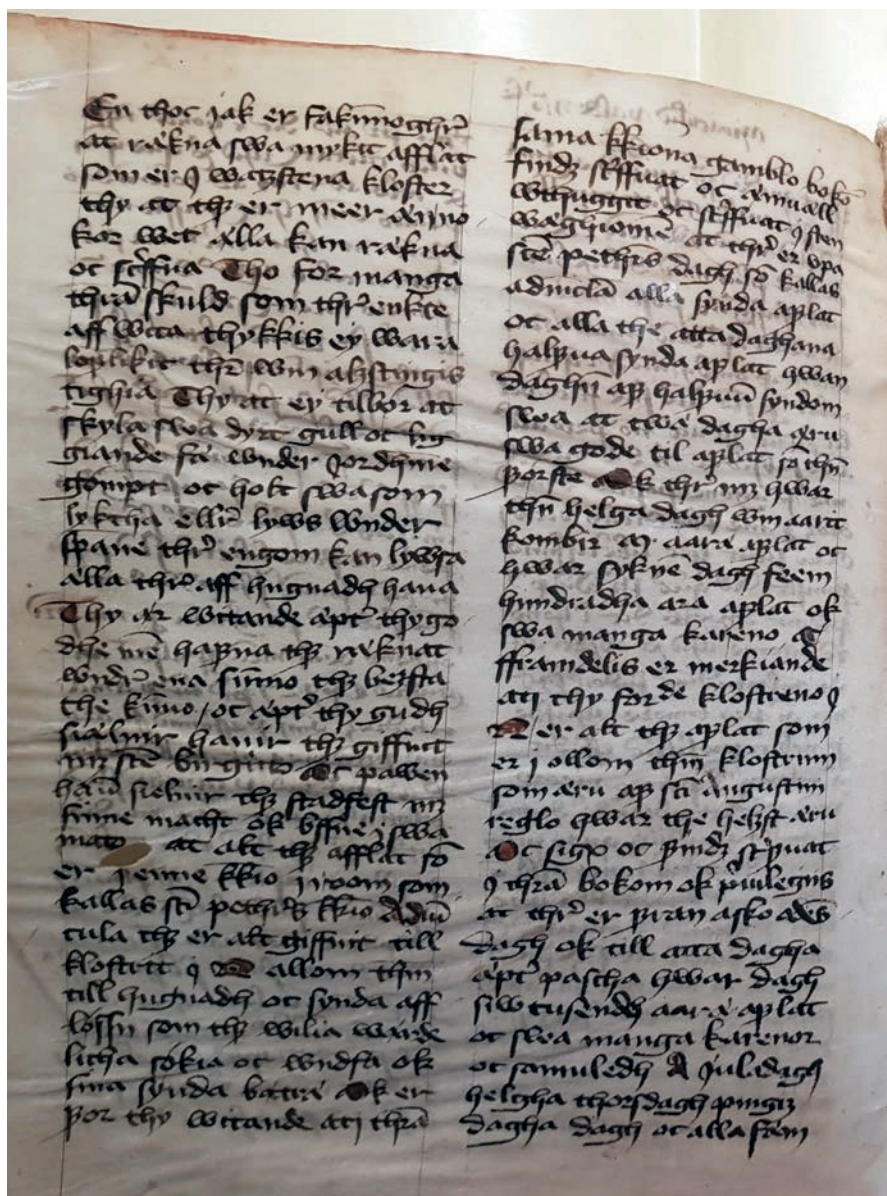 En thoc iak er fakūnoghr̄
at räkna swa mykit afflat
som er ỉ watzstena kloster
thy at thʒ er meer än no
kor wet älla kan räkna
oc scʳffua Tho for manga
thrā skuld som thr̄ enkte
aff wita thykkis ey wara
loplikit thr̄ wm alzstingis
tighia Thy at ey tilbör at
skyla swa dyrt gull oc lig
giande fä wnder iordhinne
gömpt oc holt swa som
lyktha ellr̄ lyws wnder
späne thr̄ engom kan lywsa
älla thr̄ aff hugnadh haua
Thy är witande äptʳ thy go
dhe mē hapua thʒ räknat
wndʳ ena sūmo thʒ bezsta
the kūno / oc äptʳ thy gudh
siälwir hauir thʒ giffuit
mʒ stē birgitto Oc pawen
hauʳ sielwir thʒ stadfest mʒ
sinne macht ok bffue i swa
mato at alt thʒ afflat sō
er i enne kkio i room som
kallas stī pethrs kkio Ad vī
cula thʒ er alt giffuit till
klostrit ỉ allom thm
till hugnadh oc synda aff
lössn som thʒ wilia wärde
licha sökia oc wndfa ok
sina synda bäträ Ok er
por thy witande ati thrā
sama kkiona gamblo bokō
findʒ scʳffuat oc ämuäll
wthuggit oc scʳffuat ỉ sten
wäghiomē at thr̄ er vpa
stē pethrs dagh sō kallas
advincla alla synda aplat
oc alla the atta daghana
halpua synda aplat hwan
daghn ap halpuū syndom
swa at twa dagha äru
swa gode til aplat sō thn
porste Ok thr̄ mʒ hwar
thn helga dagh wm aarit
kombir ara aplat oc
hwar syknē dagh feem
hundradha ara aplat ok
swa manga kareno
ffrämdelis er merkiande
ati thy forde klostreno ỉ
er alt thʒ aplat som
er i ollom thm klostrum
som äru ap stī augustini
reglo hwar the helzst äru
Oc sigx oc pindʒ scʳpuat
ỉ thrā bokom ok pʳuilegiis
at thr̄ er pran asko odēs
dagh ok till atta dagha
äptʳ pascha hwar dagh
siw tusendh aara aplat
oc swa manga karenor
oc samuledh A iuladagh
helgha thorsdagh pingiz
dagha dagh oc alla fäm